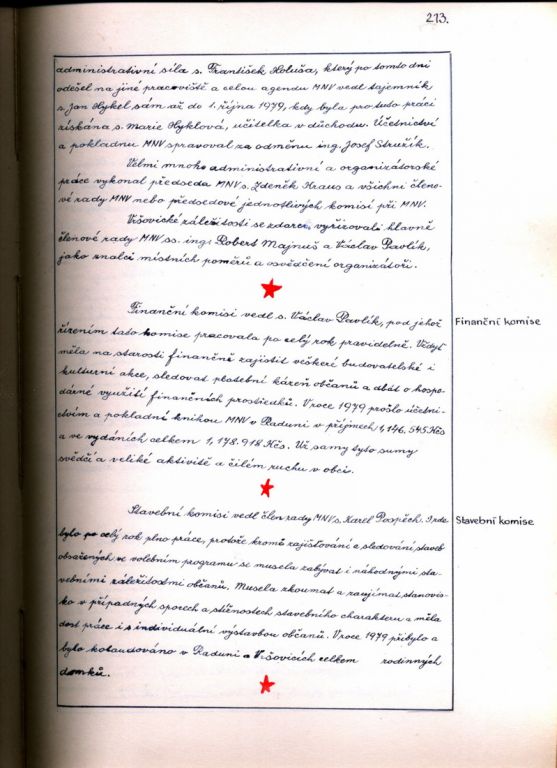 213.
administrativní síla s. František Holuša, který po tomto dni
odešel na jiné pracoviště a celou agendu MNV vedl tajemník
s. Jan Hykel sám až do 1. října 1979, kdy byla pro tuto práci
získána s. Marie Hyklová, učitelka v důchodu. Účetnictví
a pokladnu MNV spravoval za odměnu ing. Josef Stružík.
Velmi mnoho administrativní a organizátorské
práce vykonal předseda MNV s. Zdeněk Kraus a všichni členo-
vé rady MNV nebo předsedové jednotlivých komisí při MNV.
Vršovické záležitosti se zdarem vyřizovali hlavně
členové rady MNV ss. ing. Robert Majnuš a Václav Pavlík,
jako znalci místních poměrů a osvědčení organizátoři.
Finanční komisi vedl s. Václav Pavlík, pod jehož
Finanční komise
řízením tato komise pracovala po celý rok pravidelně. Vždyť
měla na starosti finančně zajistit veškeré budovatelské i
kulturní akce, sledovat platební kázeň občanů a dbát o hospo-
dárné využití finančních prostředků. V roce 1979 prošlo účetni-
ctvím a pokladní knihou MNV v Raduni v příjmech 1,146.545 Kčs
a ve vydáních celkem 1,178.918 Kčs. Už samy tyto sumy
svědčí o veliké aktivitě a čilém ruchu v obci.
Stavební komisi vedl člen rady MNV s. Karel Pospěch. I zde
Stavební komise
bylo po celý rok plno práce, protože kromě zajišťování a sledování staveb
obsažených ve volebním programu se musela zabývat i náhodnými sta-
vebními záležitostmi občanů. Musela zkoumat a zaujímat stanovis-
ko v případných sporech a stížnostech stavebního charakteru a měla
dost práce i s individuální výstavbou občanů. V roce 1979 přibylo a
bylo kolaudováno v Raduni a Vršovicích celkem rodinných
domků.